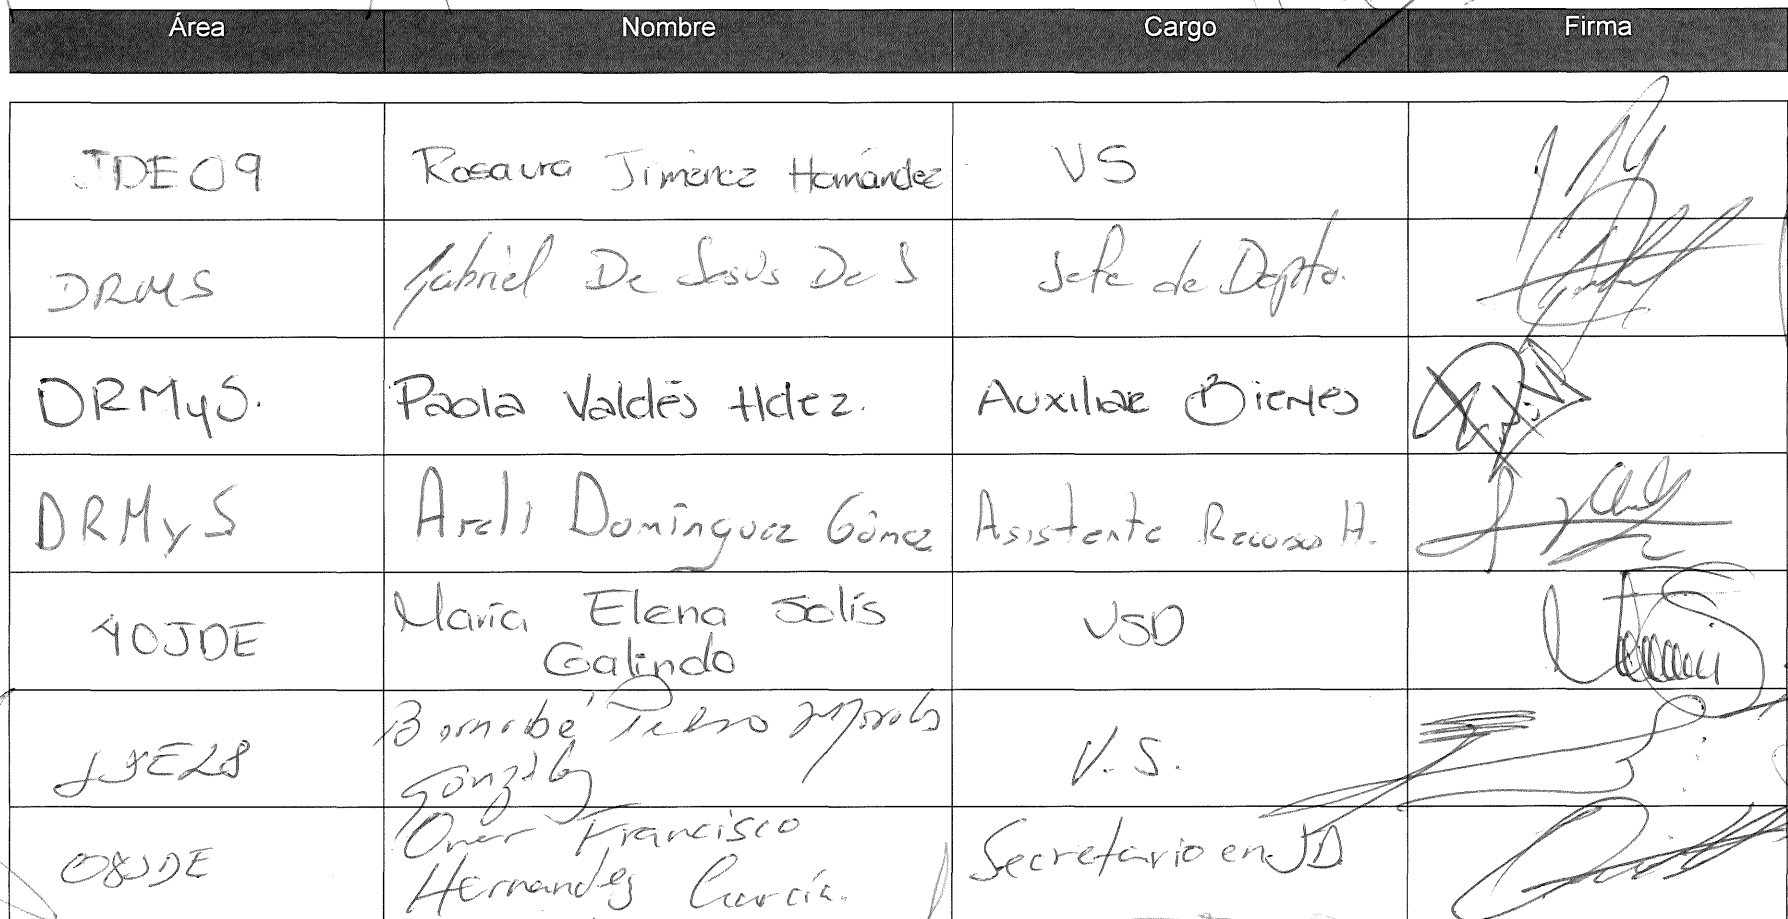 Área Nombre Cargo Firma
JDE09 Rosaura Jiménez Hernández VS
DRMS Gabriel De Jesús De J Jefe de Depto.
DRMyS. Paola Valdés Hdez. Auxiliar Bienes
DRMyS Areli Domínguez Gómez Asistente Recursos H.
40JDE María Elena Solís VSD
Galindo
JDE28 Bernabé Morales V. S.
González
08JDE Omar Francisco Secretario en JD
Hernández García.